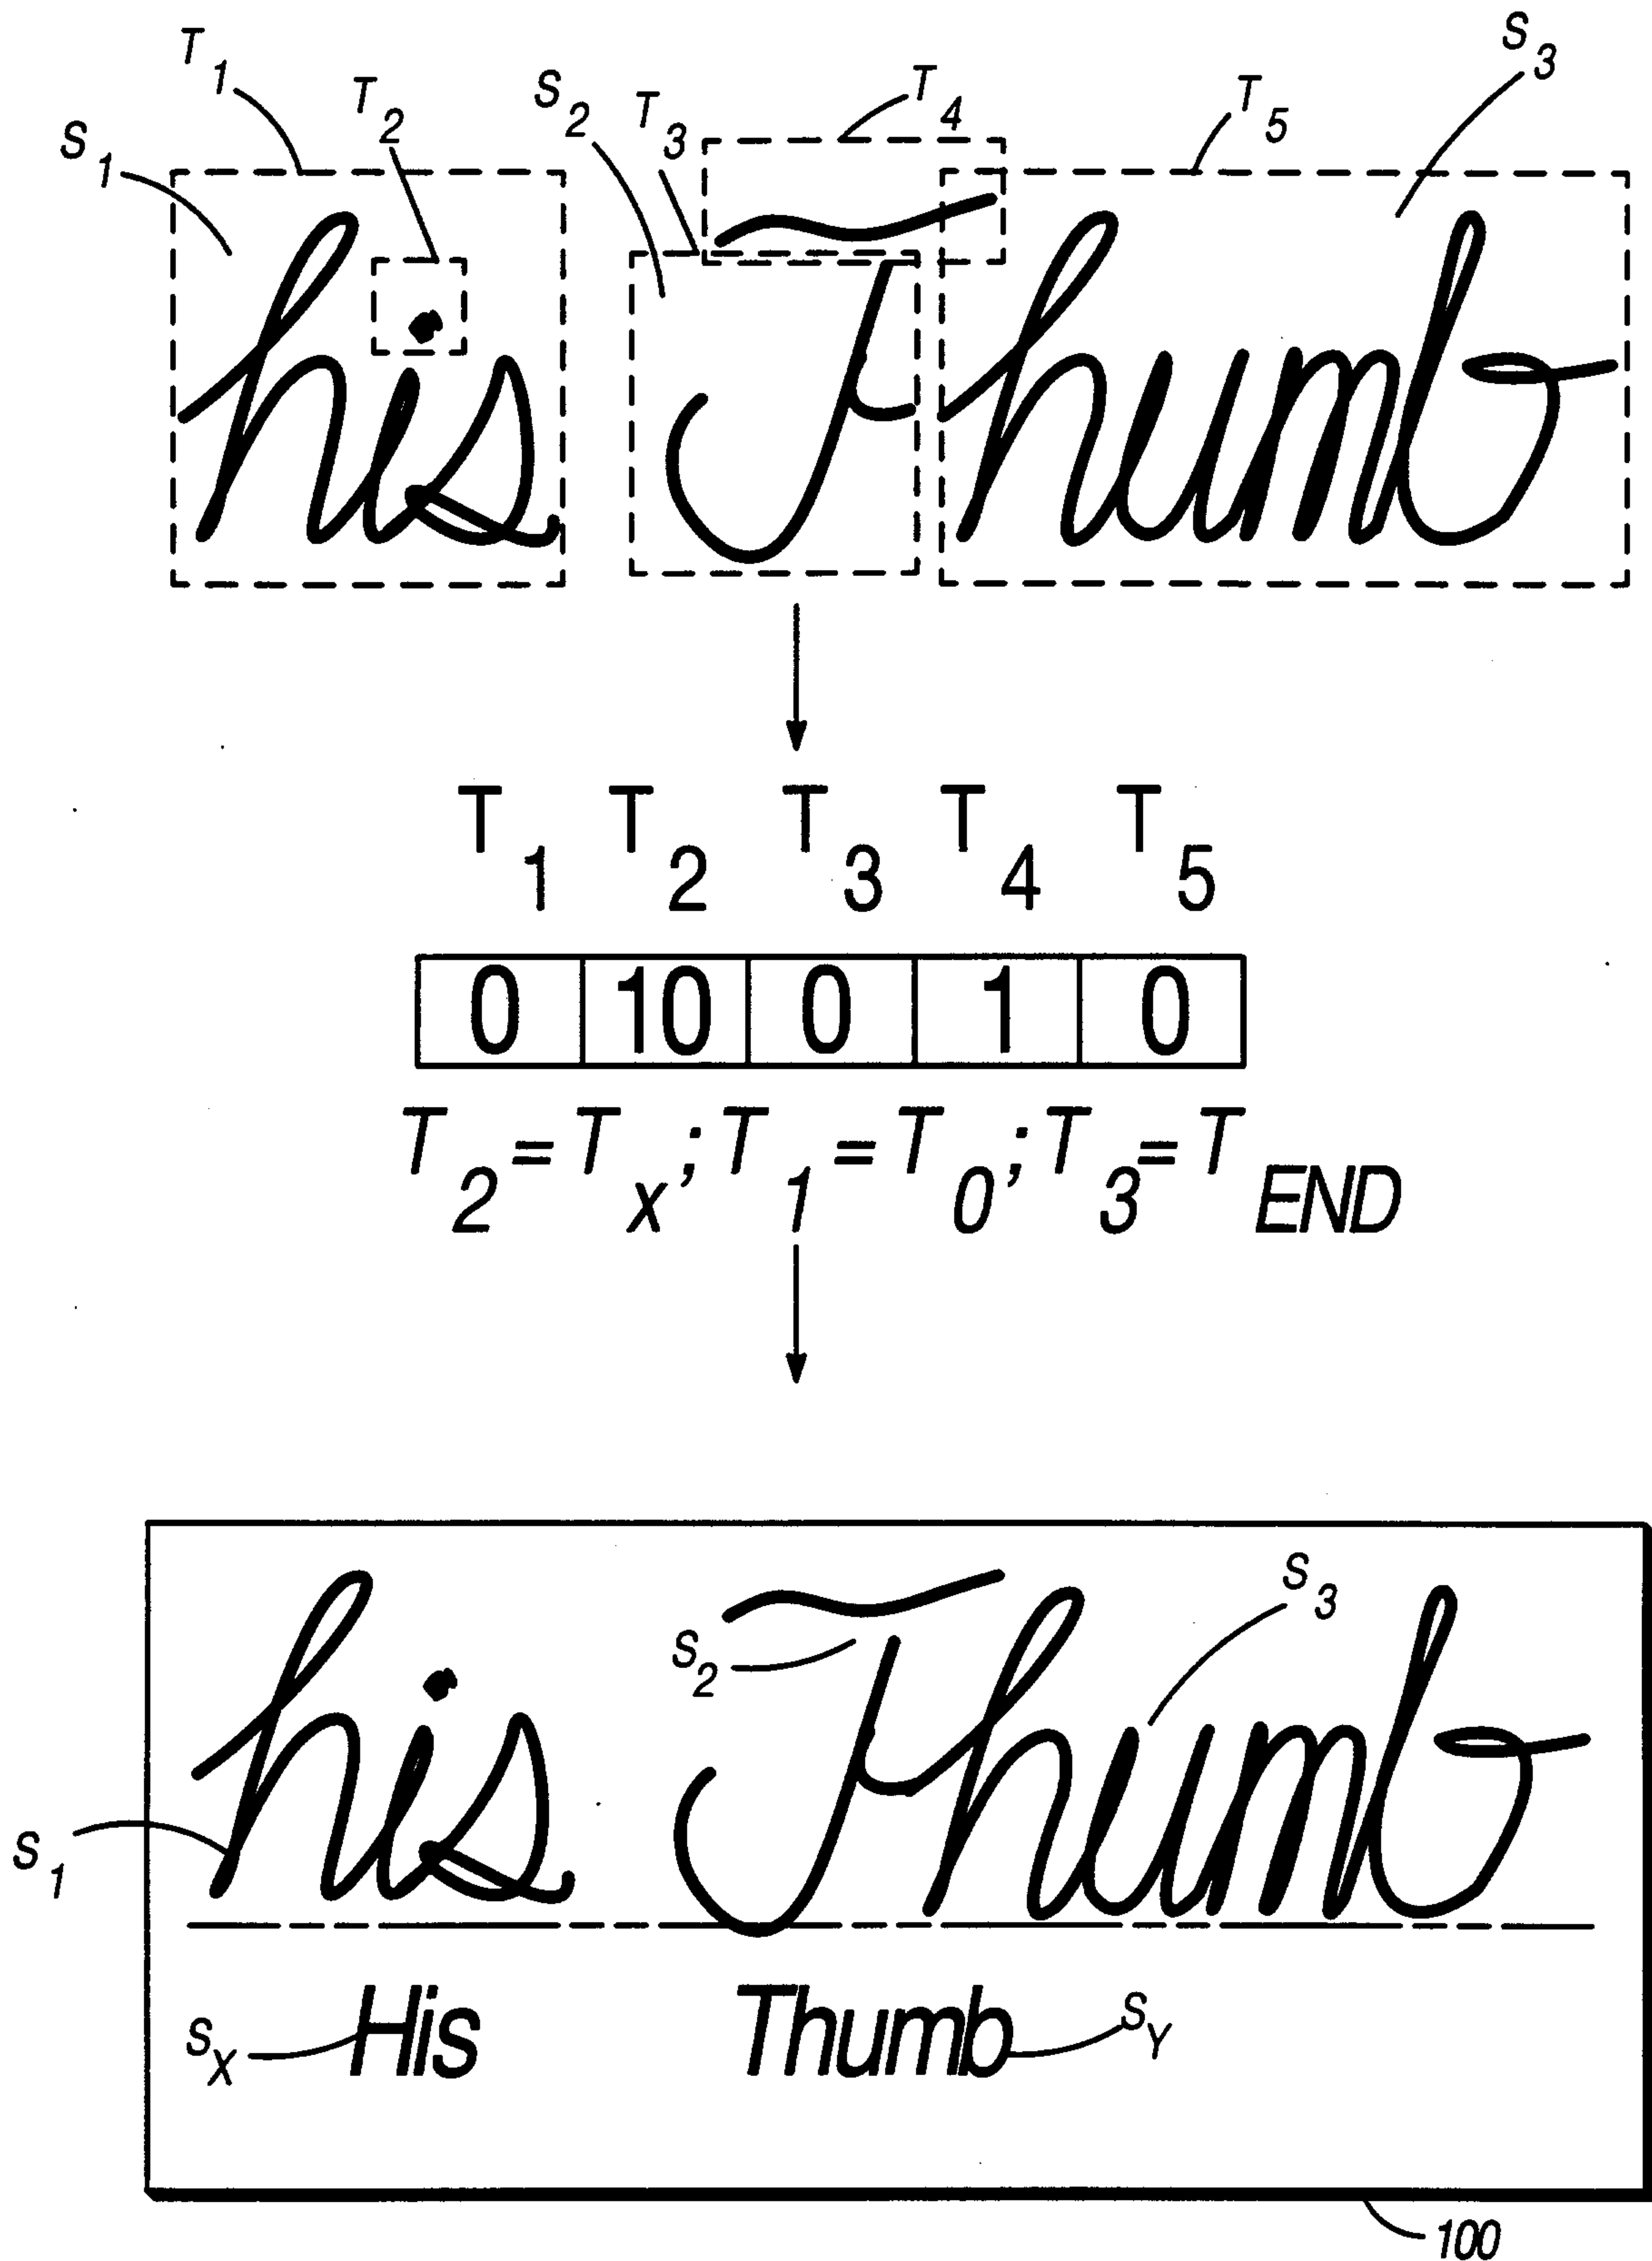 T1 T2 S2 T3 T4 T5 S3
S1
his Thumb
T1 T2 T3 T4 T5
0 10 0 1 0
T2=Tx; T1=T0; T3=TEND
his Thumb
S2 S3
S1
His Thumb
SX SY
100